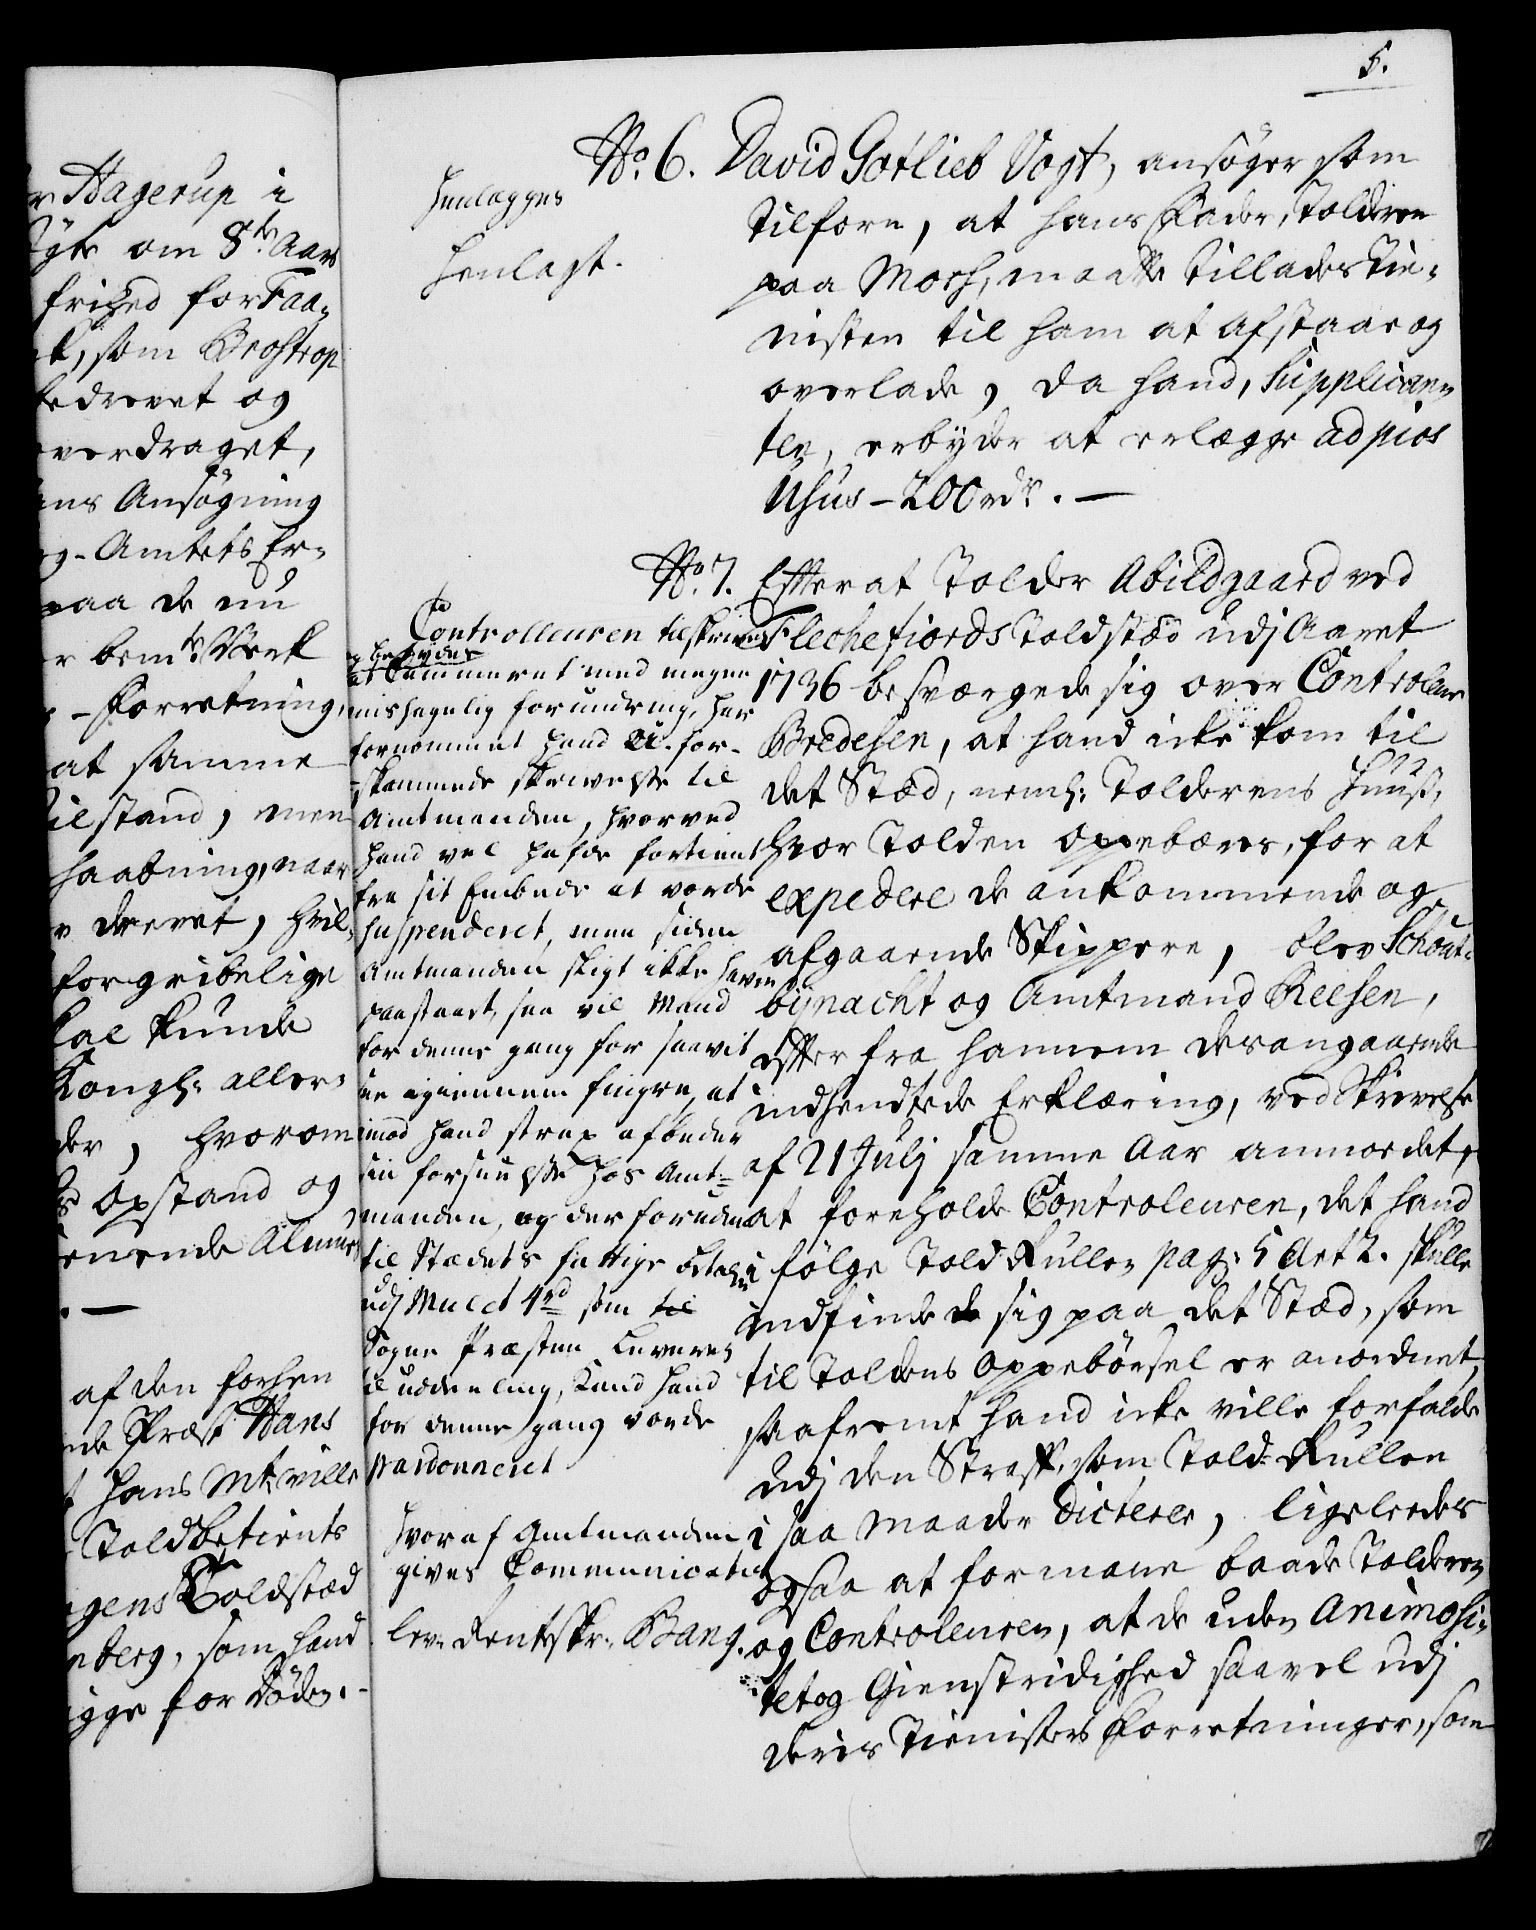 5.
r Hagerup i
søgte om 8te Aars
frihed for Taa-
k, som Brostrop
bedrevet og
overdraget,
ans Ansøgning
g-Amtets Er-
paa de nu
r bemte Verk
- Forretning,
at samme
ilstand, men
haabning, naar
v drevet, hvil-
forgribelige
kunde
Kongl: aller-
der, hvorom
s Opstand og
enende Alluner
. —
af den forhen
nde Præst Hans
t hans Mt ville
Toldbetients
gens Toldstæd
nberg, som hand
igge for Døden. -
henlegges
henlagt.
No. 6. David Gotlieb Vogt, ansøger som
tilforn, at hans Fader, Tolderen
paa Mosh, maatte tillades Tie-
nisten til ham at afstaae og
overlade, da hand, Supplican-
ten, erbyder at erlægge ad pios
Usus - 200 rdr. —
No. 7. Efter at Tolder Abildgaard ved
Flechefiords Toldstæd udj Aaret
1736 besværgede sig over Controleur
Bredesen, at hand icke kom til
det Stæd, neml: Tolderens Huus,
hvor Tolden oppebæres, for at
expedere de ankommende og
afgaaende Skippere, blev Schout-
bynacht og Amtmand Reesen,
efter fra hannem derangaaende
indhendtede Erklæring, ved Skrivelse
af 21 Julj samme Aar anmodet,
at foreholde Controleuren, det hand
i følge Told Rullen pag: 5 Art 2. skulle
indfinde sig paa det Stæd, som
til Toldens Oppebørsel er anordnet,
saafremt hand icke ville forfalde
udj den Straff, som Told-Rullen
i saa maader dicterer, ligeleedes
ogsaa at formane baade Tolderen
og Controleuren, at de uden Animosi-
tet og Gienstridighed saavel udj
deris Tienistes Forretninger, som
Controlleuren tilskrives
og betydes
at Cammeret med megen
mishagelig forundring, har
fornommet hand U-for-
skammede skrivelse til
Amtmanden, hvorved
hand vel hafde fortient
fra sit Embede at vorde
suspenderet, men siden
Amtmanden sligt ikke haver
paastaaet, saa vil mand
for denne gang for saavit
see igiennem fingre, at
imod hand strax afbeder
sin forseelse hos Amt-
manden, og der foruden
til Stædets fattige betaler
udj Mulct 4 rd som til
Sogne Præsten Leveres
til uddeeling, Kand hand
for denne gang vorde
pardonneret
hvoraf Amtmanden
gives Communication
lev: Rentskr: Bang.